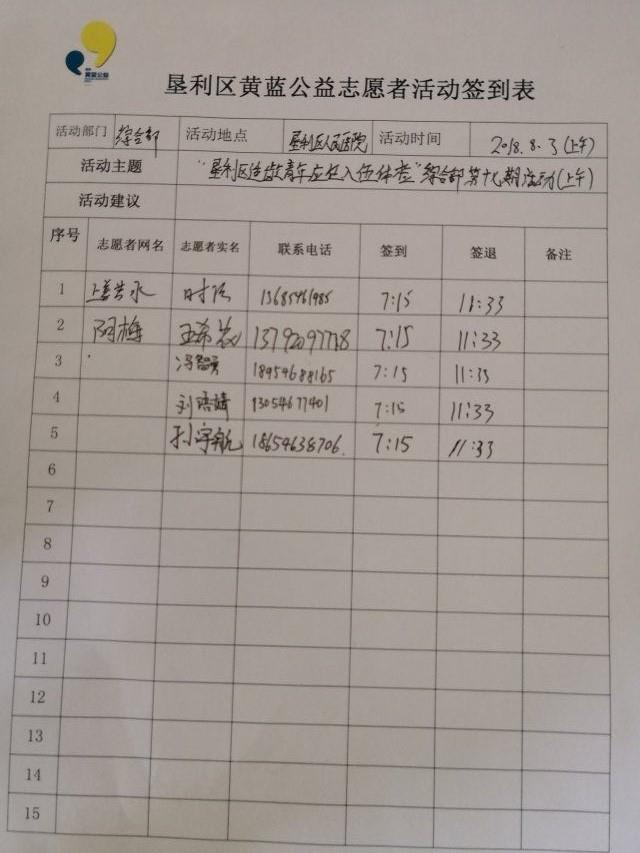 黄蓝公益
垦利区黄蓝公益志愿者活动签到表
活动部门 综合部 活动地点 垦利区人民医院 活动时间 2018.8.3(上午)
活动主题 "垦利区适龄青年应征入伍体检"综合部第十九期活动(上午)
活动建议
序号 志愿者网名 志愿者实名 联系电话 签到 签退 备注
1 上善若水 7:15 11:33
2 阿梅 13792097778 7:15 11:33
3 18954688165 7:15 11:33
4 13054677401 7:15 11:33
5 孙宇航 18654638706. 7:15 11:33
6
7
8
9
10
11
12
13
14
15